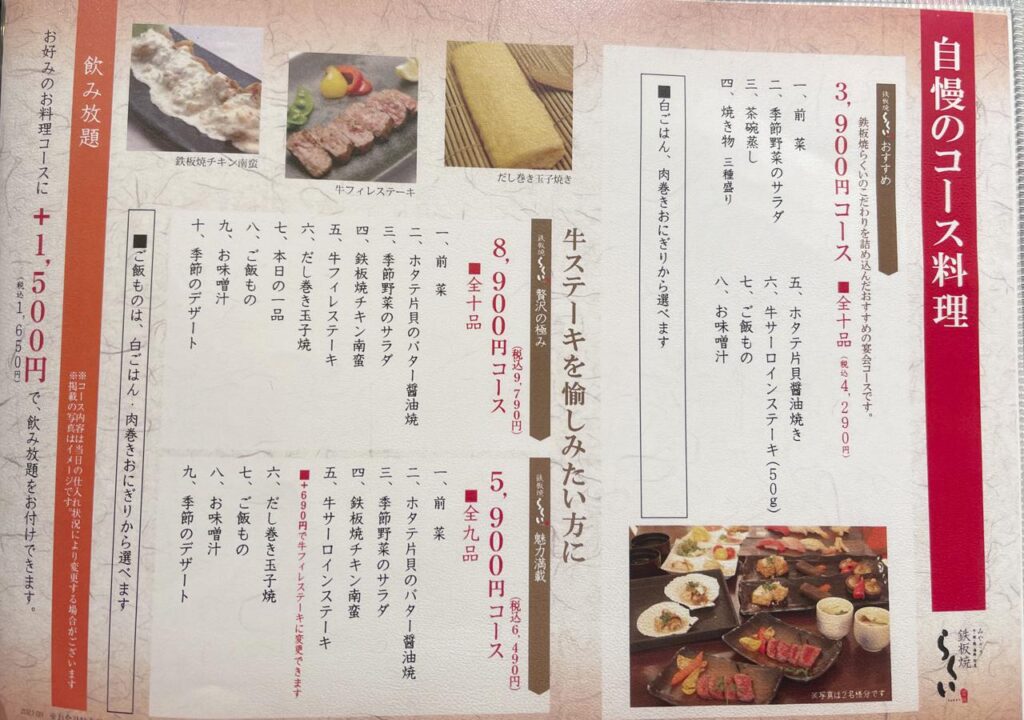 自慢のコース料理
鉄板焼
らくい
鉄板焼らくい おすすめ
鉄板焼らくいのこだわりを詰め込んだおすすめの宴会コースです。
3,900円コース ■全十品 (税込4,290円)
一、前 菜
二、季節野菜のサラダ
三、茶碗蒸し
四、焼き物 三種盛り
五、ホタテ片貝醤油焼き
六、牛サーロインステーキ(50g)
七、ご飯もの
八、お味噌汁
■白ごはん、肉巻きおにぎりから選べます
※写真は2名様分です
牛ステーキを愉しみたい方に
だし巻き玉子焼き
牛フィレステーキ
鉄板焼チキン南蛮
鉄板焼らくい 贅沢の極み
8,900円コース
(税込9,790円)
■全十品
一、前 菜
二、ホタテ片貝のバター醤油焼
三、季節野菜のサラダ
四、鉄板焼チキン南蛮
五、牛フィレステーキ
六、だし巻き玉子焼
七、本日の一品
八、ご飯もの
九、お味噌汁
十、季節のデザート
鉄板焼らくい 魅力満載
5,900円コース
(税込6,490円)
■全九品
一、前 菜
二、ホタテ片貝のバター醤油焼
三、季節野菜のサラダ
四、鉄板焼チキン南蛮
五、牛サーロインステーキ
■+690円で牛フィレステーキに変更できます
六、だし巻き玉子焼
七、ご飯もの
八、お味噌汁
九、季節のデザート
■ご飯ものは、白ごはん・肉巻きおにぎりから選べます
飲み放題
※コース内容は当日の仕入れ状況により変更する場合がございます
※掲載の写真はイメージです。
お好みのお料理コースに +1,500円 で、飲み放題をお付けできます。
(税込1,650円)